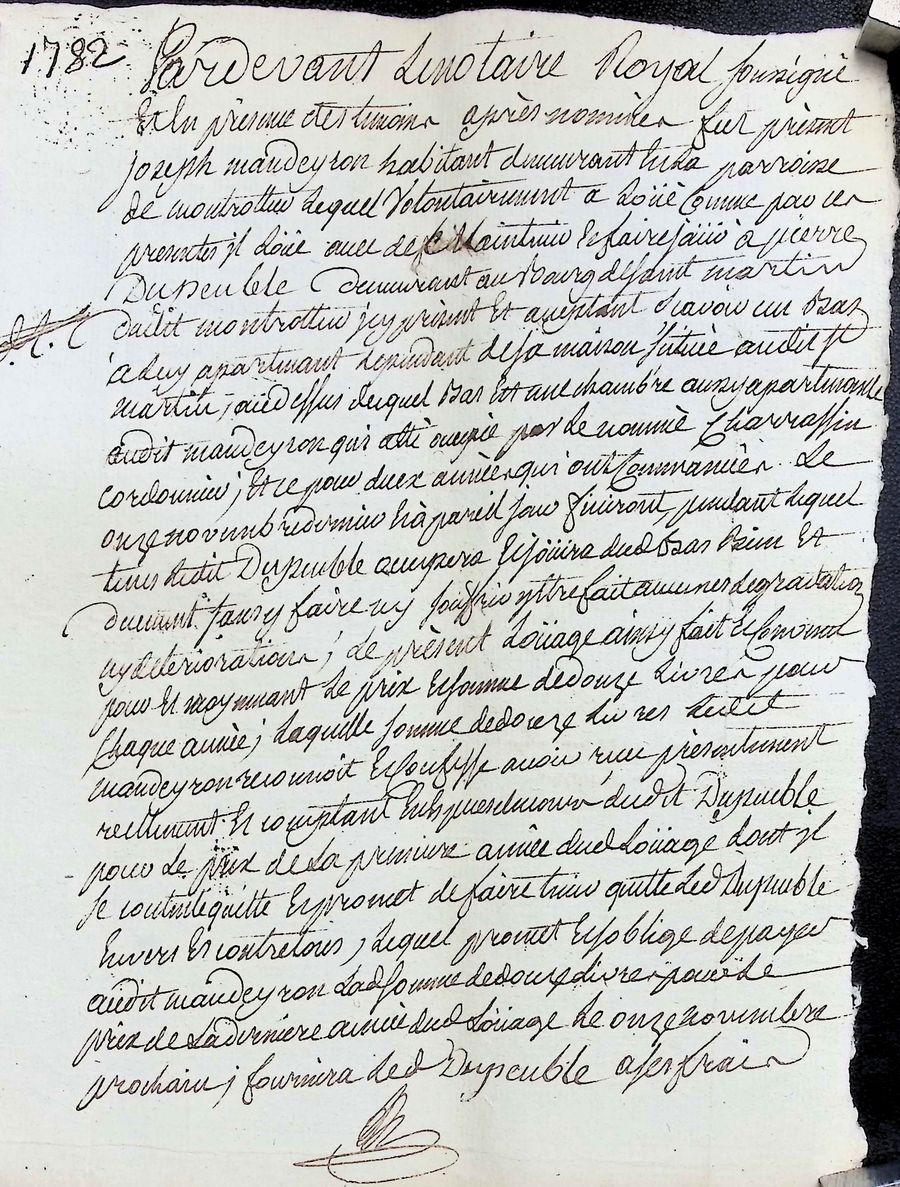 1782
Pardevant Lenotaire Royal soussigné
Et En présence des temoins après nommés fut présent
joseph maudeyron habitant demeurant En La parroisse
de montrottier Lequel Volontairement a Loüé Comme par ces
presentes jl Loüe avec de Maintenir Et faire joüir à pierre
Dupeuble demeurant au Bourg de saint martin
dudit montrottier jcy présent Et acceptant scavoir un Bas
à Luy apartenant dependant de sa maison sittuée audit st
martin, audessus duquel Bas Est une chambre aussy apartenante
audit maudeyron qui a été occupée par Le nommé Charrassin
cordonnier; Et ce pour deux années qui ont Commancées Le
onze novembre dernier Et à pareil jour finiront, pendant Lequel
tems Ledit Dupeuble occupera Et joüira dud Bas Bien Et
duement sans y faire ny souffrir y Etre fait aucunes degradations
ny deteriorations; Le présent Loüage ainsy fait Et Convenu
pour Et moyennant Le prix Et somme de douze Livres pour
Chaque année; Laquelle somme de douze Livres Ledit
maudeyron reconnoit Et Confesse avoir reçu présentement
reellement Et comptant En Espèces de cours dudit Dupeuble
pour Le prix de La premiere année dud Loüage dont jl
se contente quitte Et promet de faire tenir quitte Led Dupeuble
Envers Et contre tous, Lequel promet Et s'oblige de payer
audit maudeyron Lad somme de douze Livres pour Le
prix de La derniere année dud Loüage Le onze novembre
prochain; fournira Led Dupeuble a ses frais